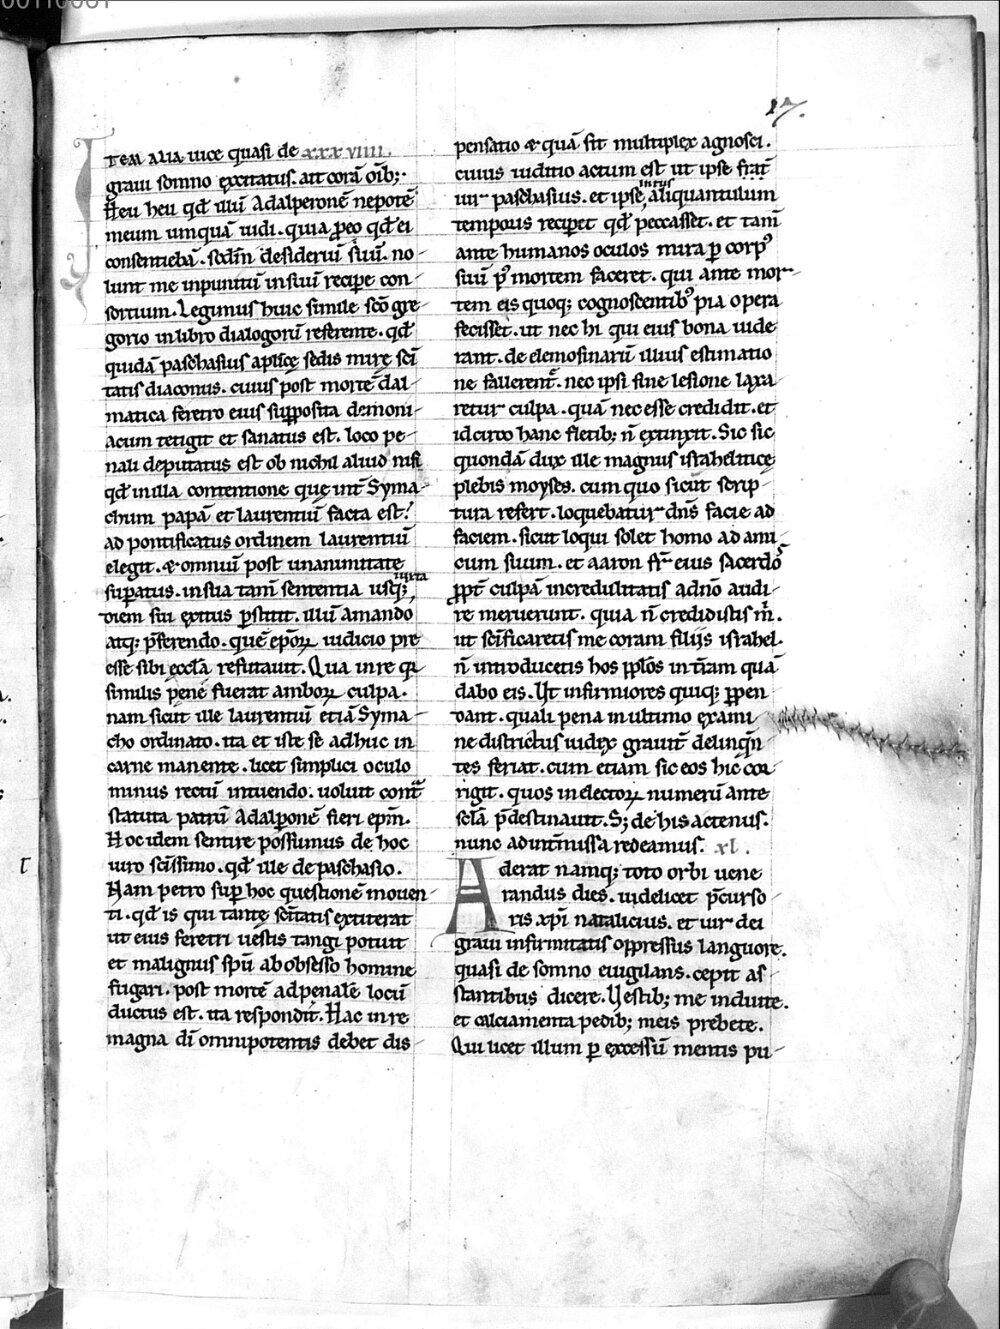 17.
Item alia uice quasi de xxxviiii.
graui somno excitatus. ait corā oīb;.
Heu heu qđ illū Adalperonē nepotē
meum umquā uidi. quia ꝑeo qđ ei
consentiebā. sedīn desideriū suū. no-
lunt me inpunitū in suū recipe con-
sortium. Legimus huic simile scō gre-
gorio in libro dialogorū referente. qđ
quidā paschasius aplicę sedis mirę scī-
tatis diaconus. cuius post mortē dal-
matica feretro eius supposita demoni-
acum tetigit et sanatus est. loco pe-
nali deputatus est ob nichil aliud nisi
qđ in illa contentione que int Syma-
chum papā et laurentiū facta est.
ad pontificatus ordinem laurentiū
elegit. & omniū post unanimitate
supatus. in sua tam̄ sententia usq; iuxta
diem sui exitus ꝑstitit. illū amando
atq; p̄ferendo. quē ep̄oꝝ iudicio pre-
esse sibi ęccl̄a refutauit. Qua in re q̇
similis pene fuerat amboꝝ culpa.
nam sicut ille laurentiū etiā Syma-
cho ordinato. ita et iste se adhuc in
carne manente. licet simplici oculo
minus rectū intuendo. uoluit cont̄
statuta patrū Adalꝑonē fieri ep̄m.
Hoc idem sentire possumus de hoc
uiro sc̄issimo. qđ ille de paschasio.
Nam petro sup hoc questionē mouen-
ti. qđ is qui tantę sc̄itatis extiterat
ut eius feretri uestis tangi potuit
et malignus sp̄u ab obsesso homine
fugari. post mortē ad penale locū
ductus est. ita respondit. Hac in re
magna dī omnipotentis debet dis-
pensatio & quā sit multiplex agnosci.
cuius iuditio actum est ut ipse frat̄
uir paschasius. et ipse intus aliquantulum
temporis recipet qđ peccasset. et tam̄
ante humanos oculos mira ꝑ corpꝰ
suū pꝰ mortem faceret. qui ante mor-
tem eis quoq; cognoscentibꝰ pia opera
fecisset. ut nec hi qui eius bona uide
rant. de elemosinarū illius estimatio
ne fallerent̄. nec ipsi sine lesione laxa
retur culpa. quā nec esse credidit. et
idcirco hanc fletib; n̄ extinxit. Sic sic
quondā dux ille magnus israhelitice
plebis moyses. cum quo sicut scrip-
tura refert. loquebatur dn̄s facie ad
faciem. sicut loqui solet homo ad ami-
cum suum. et aaron fr̄ eius sacerdos
ꝓpt culpā incredulitatis ad n̄o audi-
re meruerunt. quia n̄ credidistis m̄.
ut sc̄ificaretis me coram filijs israhel.
n̄ introducetis hos pplos in t̄ram quā
dabo eis. Ut infirmiores quiq; ꝑpen
dant. quali pena in ultimo exami-
ne districtus iudex grauit̄ delinqn̄-
tes feriat. cum etiam sic eos hic cor-
rigit. quos in electoꝝ numerū ante
scl̄a p̄destinauit. S; de his actenus.
nunc ad intmissa redeamus. xl.
Aderat namq; toto orbi uene
randus dies. uidelicet p̄curso
ris xpi natalicius. et uir dei
graui infirmitatis oppressus languore.
quasi de somno euigilans. cepit as-
stantibus dicere. Uestib; me induite.
et calciamenta pedib; meis prebete.
Qui licet illum ꝑ excessū mentis pu-